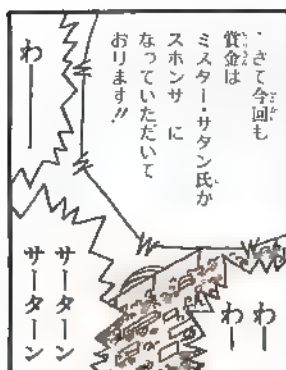 さて今回も
賞金は
ミスター・サタン氏が
スホンサ に
なっていただいて
おります!!
わー
わー
わー
サーターン
サーターン